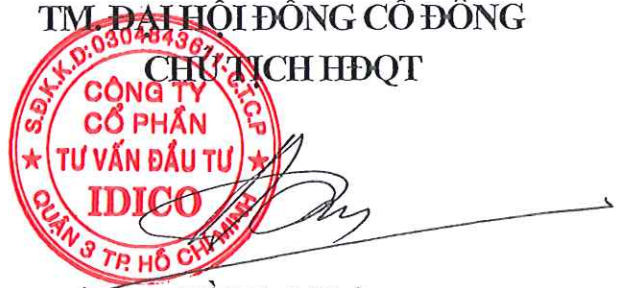 TM. ĐẠI HỘI ĐỒNG CỔ ĐÔNG
CHỦ TỊCH HĐQT
S.Đ.K.K.D:0304843611-C.T.C.P
CÔNG TY
CỔ PHẦN
TƯ VẤN ĐẦU TƯ
IDICO
QUẬN 3 TP. HỒ CHÍ MINH